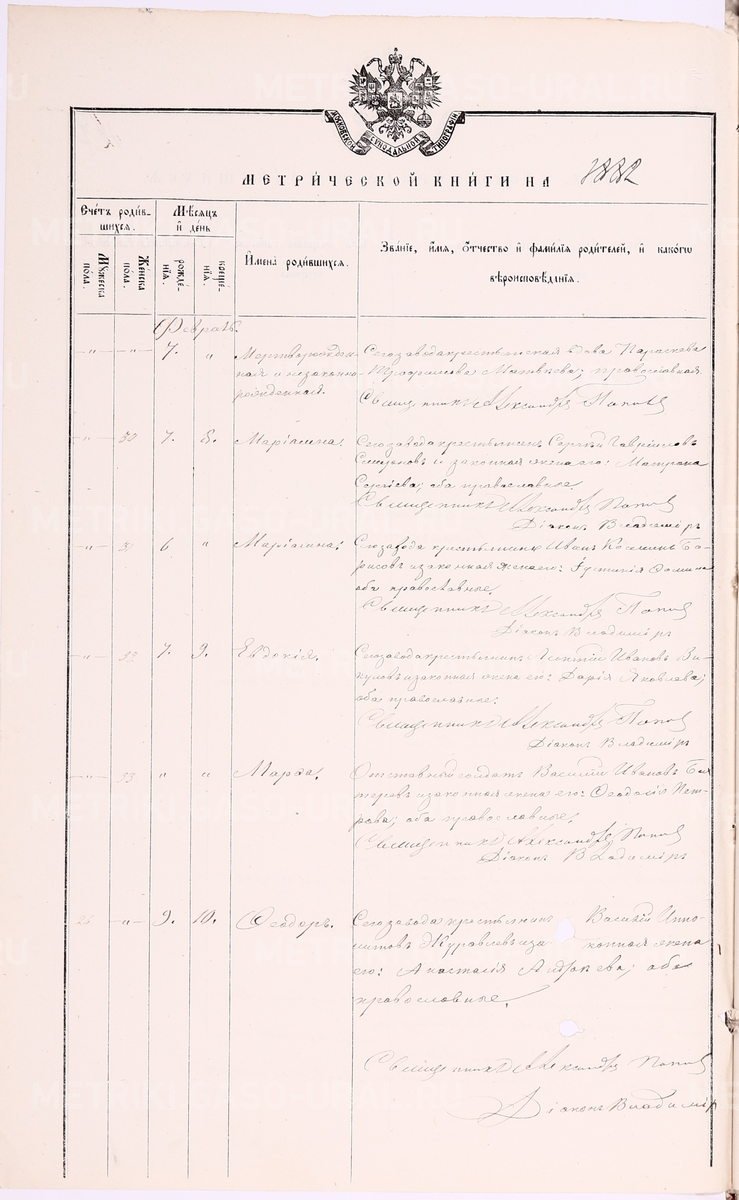 МОСКОВСКОЙ СѴНОДАЛЬНОЙ ТИПОГРАФІИ
МЕТРИЧЕСКОЙ КНИГИ НА 1882
Счетъ родив-
шихся.
Мѣсяцъ
и день
Мужеска
пола.
Женска
пола.
рожде-
нія.
креще-
нія.
Имена родившихся.
Званіе, имя, отчество и фамилія родителей, и какого
вѣроисповѣданія.
Февраль.
-"- -"- 7. " Мертворожден- Сегозавода крестьянская вдова Параскева
ная и незаконно- Трофимова Матвѣева; православная.
рожденная. Священникъ Александръ Поповъ
" 30 7. 8. Маріамна. Сегозавода крестьянинъ Сергій Гавріиловъ
Смирновъ и законная жена его: Матрона
Сергіева; оба православные.
Священникъ Александръ Поповъ
Діаконъ Владиміръ
" 31 6 " Маріамна. Сегозавода крестьянинъ Иванъ Козминъ Бо-
рисовъ и законная жена его: Іустинія
оба православные.
Священникъ Александръ Поповъ
Діаконъ Владиміръ
" 32 7. 9. Евдокія. Сегозавода крестьянинъ Леонтій Ивановъ Ви-
куловъ и законная жена его: Дарія Яковлева;
оба православные.
Священникъ Александръ Поповъ
Діаконъ Владиміръ
" 33 " " Марѳа. Отставной солдатъ Василій Ивановъ
и законная жена его: Ѳеодосія Пет-
рова; оба православные.
Священникъ Александръ Поповъ
Діаконъ Владиміръ
26 -"- 9. 10. Ѳеодоръ. Сегозавода крестьянинъ Василій Иппо-
литовъ Журавлевъ и законная жена
его: Анастасія Андреева; оба
православные.
Священникъ Александръ Поповъ
Діаконъ Владиміръ